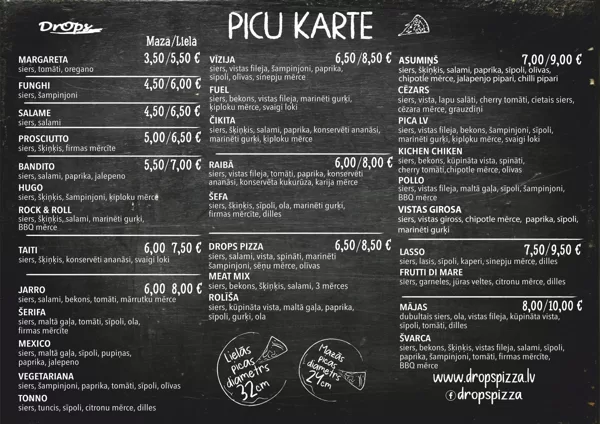 Drops
PICU KARTE
Maza/Liela
MARGARETA 3,50/5,50 €
siers, tomāti, oregano
FUNGHI 4,50/6,00 €
siers, šampinjoni
SALAME 4,50/6,50 €
siers, salami
PROSCIUTTO 5,00/6,50 €
siers, šķiņķis, firmas mērcīte
BANDITO 5,50/7,00 €
siers, salami, paprika, jalepeno
HUGO
siers, šķiņķis, šampinjoni, ķiploku mērce
ROCK & ROLL
siers, šķiņķis, salami, marinēti gurķi,
BBQ mērce
TAITI 6,00 7,50 €
siers, šķiņķis, konservēti ananāsi, svaigi loki
JARRO 6,00 8,00 €
siers, salami, bekons, tomāti, mārrutku mērce
ŠERIFA
siers, maltā gaļa, tomāti, sīpoli, ola,
firmas mērcīte
MEXICO
siers, maltā gaļa, sīpoli, pupiņas,
paprika, jalepeno
VEGETARIANA
siers, šampinjoni, paprika, tomāti, sīpoli, olīvas
TONNO
siers, tuncis, sīpoli, citronu mērce, dilles
VĪZIJA 6,50/8,50 €
siers, vistas fileja, šampinjoni, paprika,
sīpoli, olīvas, sinepju mērce
FUEL
siers, bekons, vistas fileja, marinēti gurķi,
ķiploku mērce, svaigi loki
ČIKITA
siers, šķiņķis, salami, paprika, konservēti ananāsi,
marinēti gurķi, ķiploku mērce
RAIBĀ 6,00/8,00 €
siers, vistas fileja, tomāti, paprika, konservēti
ananāsi, konservēta kukurūza, karija mērce
ŠEFA
siers, šķiņķis, sīpoli, ola, marinēti gurķi,
firmas mērcīte, dilles
DROPS PIZZA 6,50/8,50 €
siers, salami, vista, spināti, marinēti
šampinjoni, sēņu mērce, olīvas
MEAT MIX
siers, bekons, šķiņķis, salami, 3 mērces
ROLĪŠA
siers, kūpināta vista, maltā gaļa, paprika,
sīpoli, gurķi, ola
Lielās
picas
diametrs
32cm
Mazās
picas
diametrs
24cm
ASUMIŅŠ 7,00/9,00 €
siers, šķiņķis, salami, paprika, sīpoli, olīvas,
chipotle mērce, jalapenjo pipari, chilli pipari
CĒZARS
siers, vista, lapu salāti, cherry tomāti, cietais siers,
cēzara mērce, grauzdiņi
PICA LV
siers, vistas fileja, bekons, šampinjoni, sīpoli,
marinēti gurķi, ķiploku mērce, svaigi loki
KICHEN CHIKEN
siers, bekons, kūpināta vista, spināti,
cherry tomāti,chipotle mērce, olīvas
POLLO
siers, vistas fileja, maltā gaļa, sīpoli, šampinjoni,
BBQ mērce
VISTAS GIROSA
siers, vistas giross, chipotle mērce, paprika, sīpoli,
marinēti gurķi
LASSO 7,50/9,50 €
siers, lasis, sīpoli, kaperi, sinepju mērce, dilles
FRUTTI DI MARE
siers, garneles, jūras veltes, citronu mērce, dilles
MĀJAS 8,00/10,00 €
dubultais siers, ola, vistas fileja, kūpināta vista,
sīpoli, tomāti, dilles
ŠVARCA
siers, bekons, šķiņķis, vistas fileja, salami, sīpoli,
paprika, šampinjoni, tomāti, firmas mērcīte,
BBQ mērce
www.dropspizza.lv
dropspizza